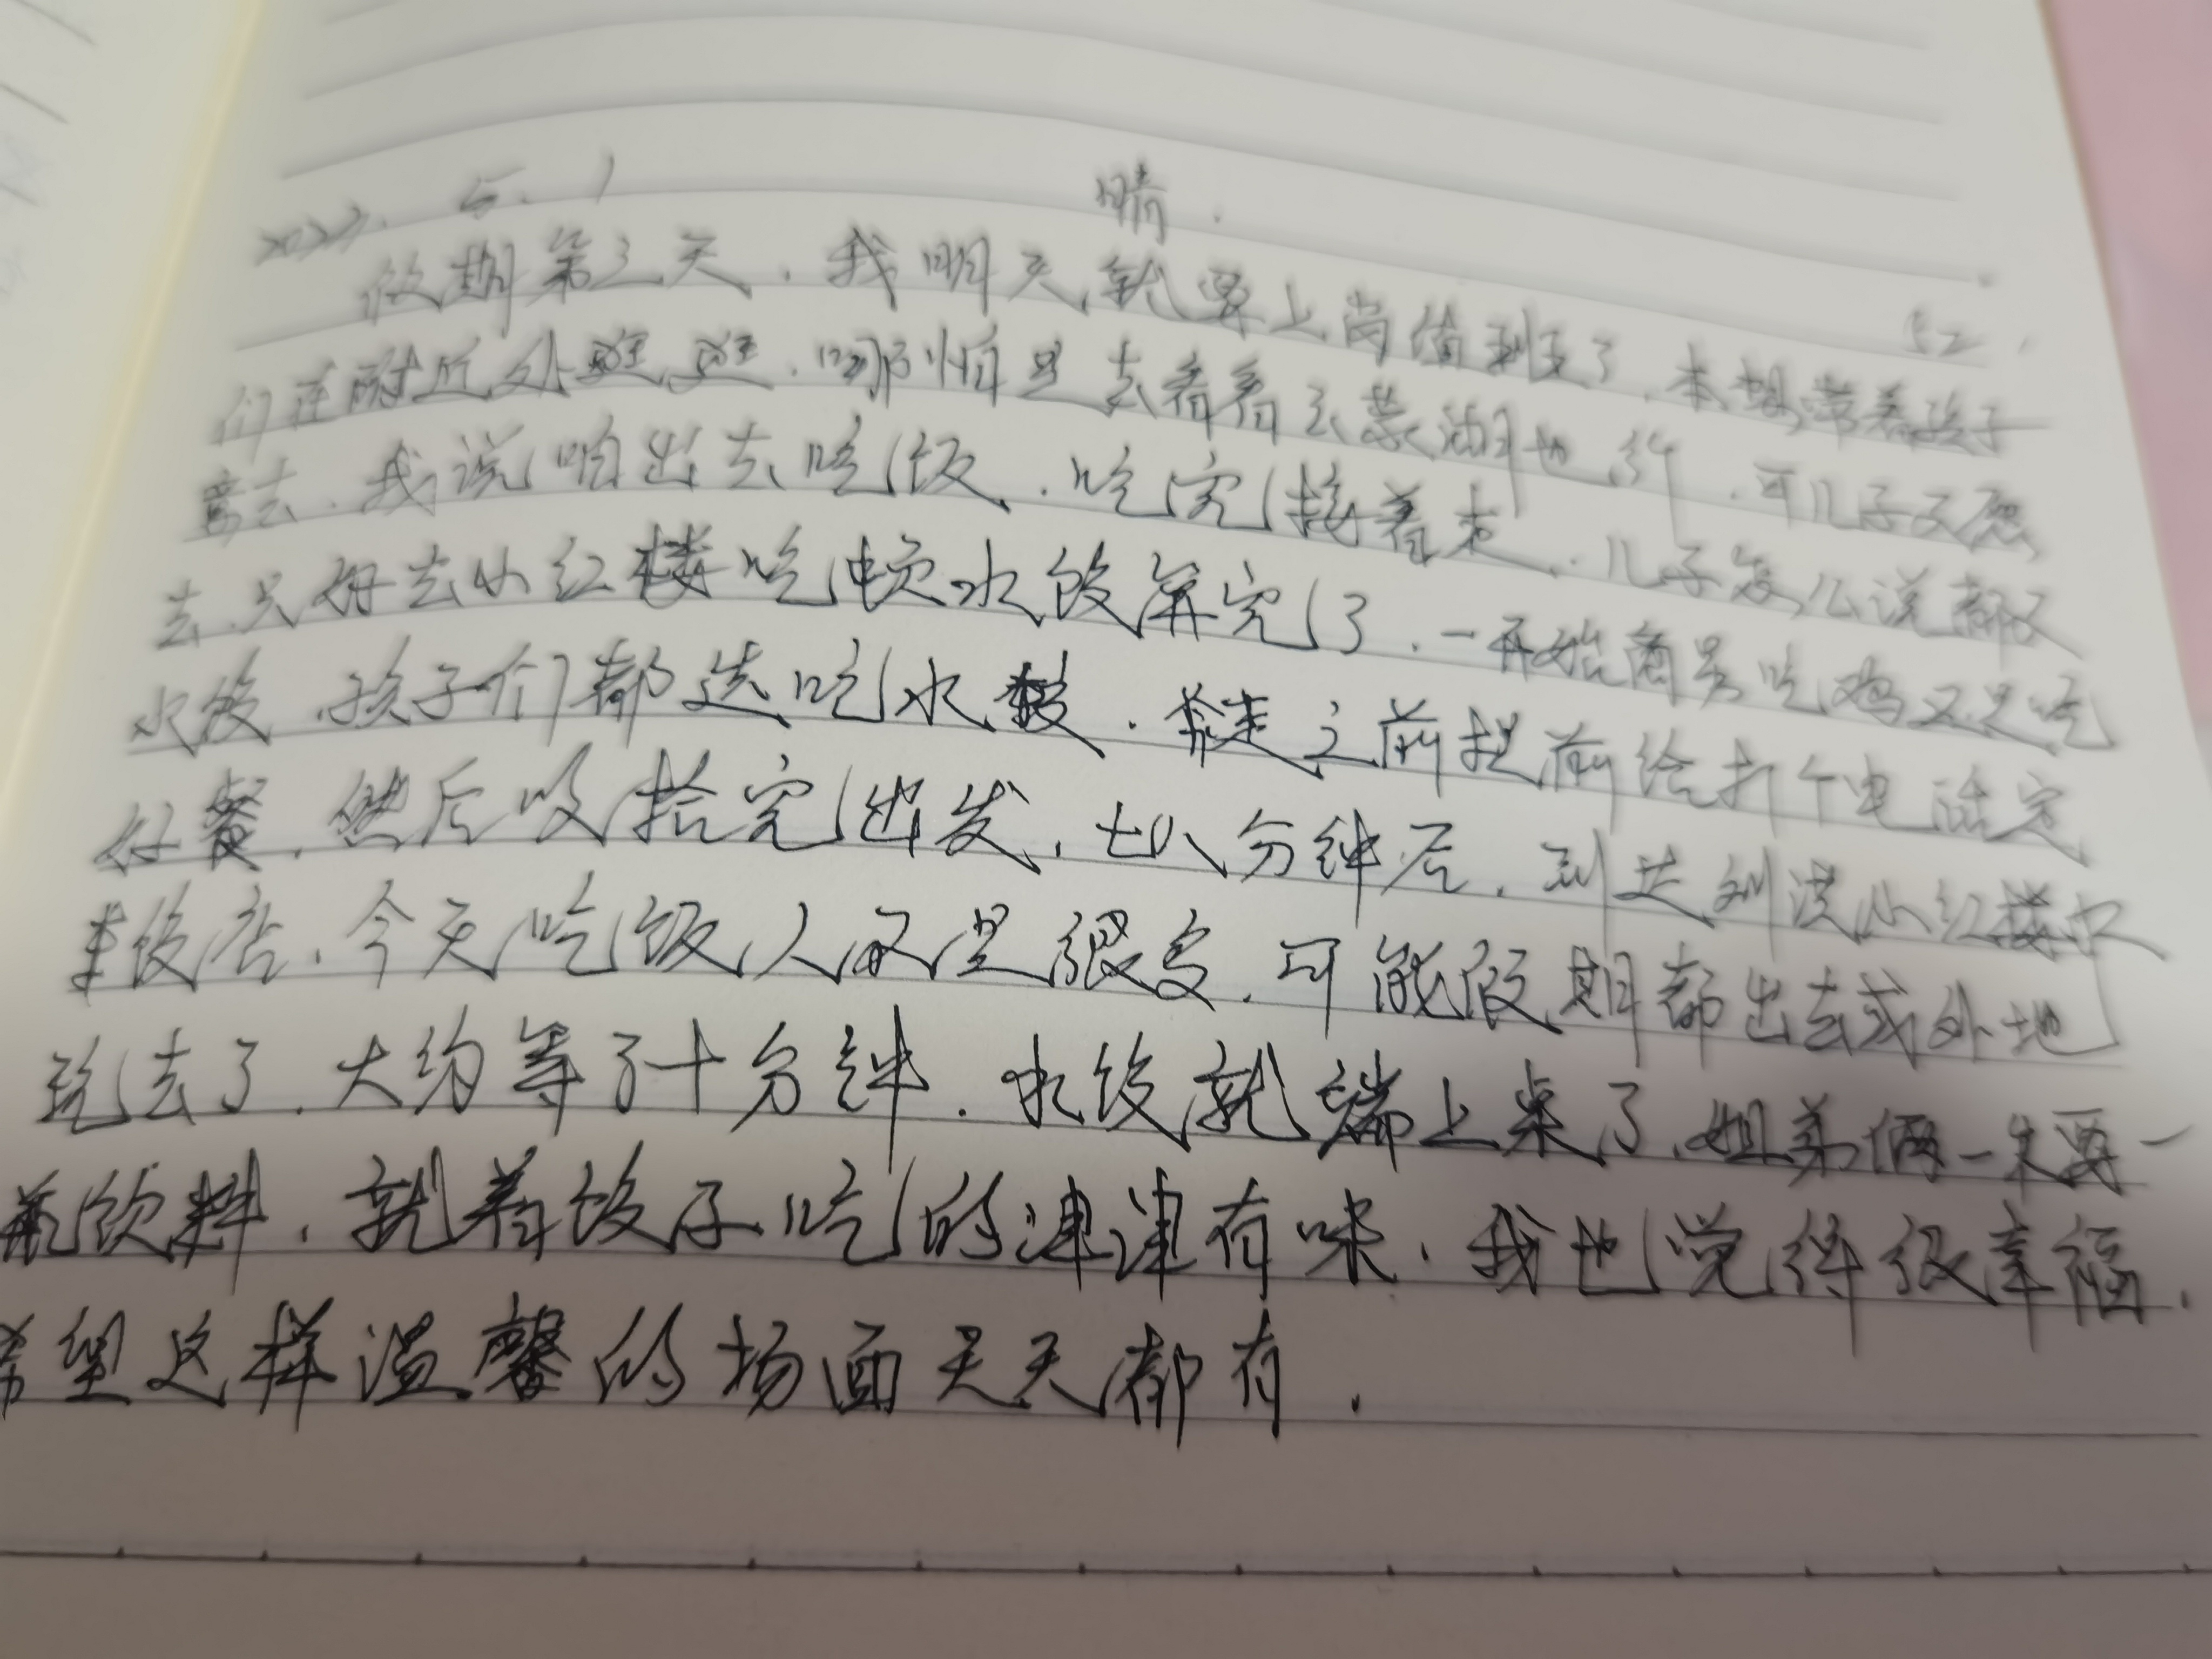 晴.
52.
假期第三天，我明天就要上岗值班了，本想带着孩子
们在附近处逛逛，哪怕是去看看云蒙湖也行，可儿子不愿
意去，我说咱出去吃饭，吃完接着走，儿子怎么说都不
去，只好去小红楼吃顿水饺算完了，一开始商量吃鸡又是吃
水饺，孩子们都选吃水饺，走之前提前给打个电话定
好餐，然后收拾完出发，七八分钟后，到达刘洪小红楼水
饺店，今天吃饭人不是很多，可能假期都出去或外地
玩去了，大约等了十分钟，水饺就端上桌了，姐弟俩一人要一
瓶饮料，就着饺子吃的津津有味，我也觉得很幸福，
希望这样温馨的场面天天都有.